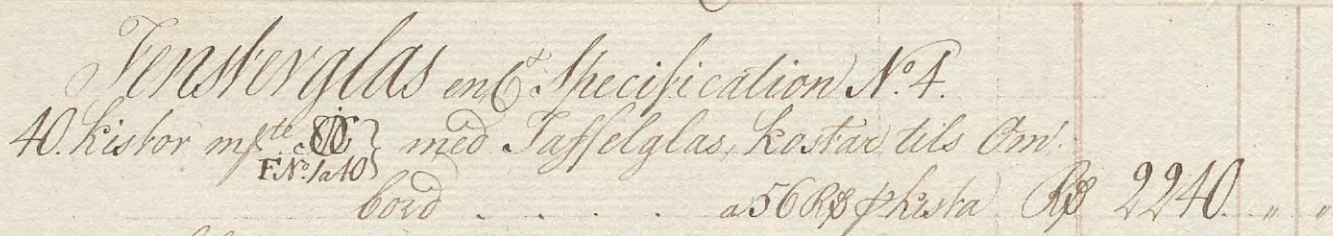 Fensterglas enl.t Specification No. 4.
40. kistor mk.te F. No. 1 a 40 med Taffelglas, kostar tils Om
bord . . . . . a 56 Rd p kista Rd 2240. " "